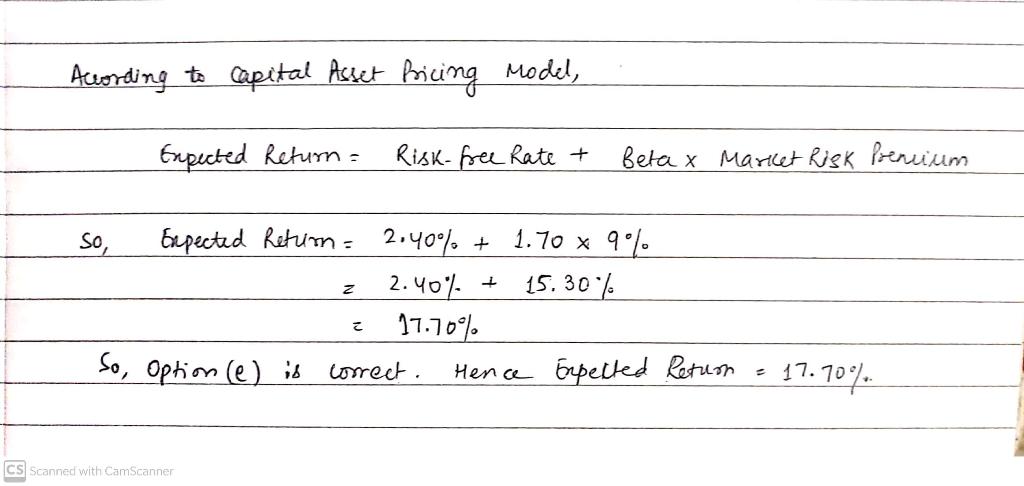 According to Capital Asset Pricing Model,
Expected Return = Risk-free Rate + Beta x Market Risk Premium
So, Expected Return = 2.40% + 1.70 x 9%
= 2.40% + 15.30%
= 17.70%
So, Option (e) is correct. Hence Expected Return = 17.70%.
CS Scanned with CamScanner